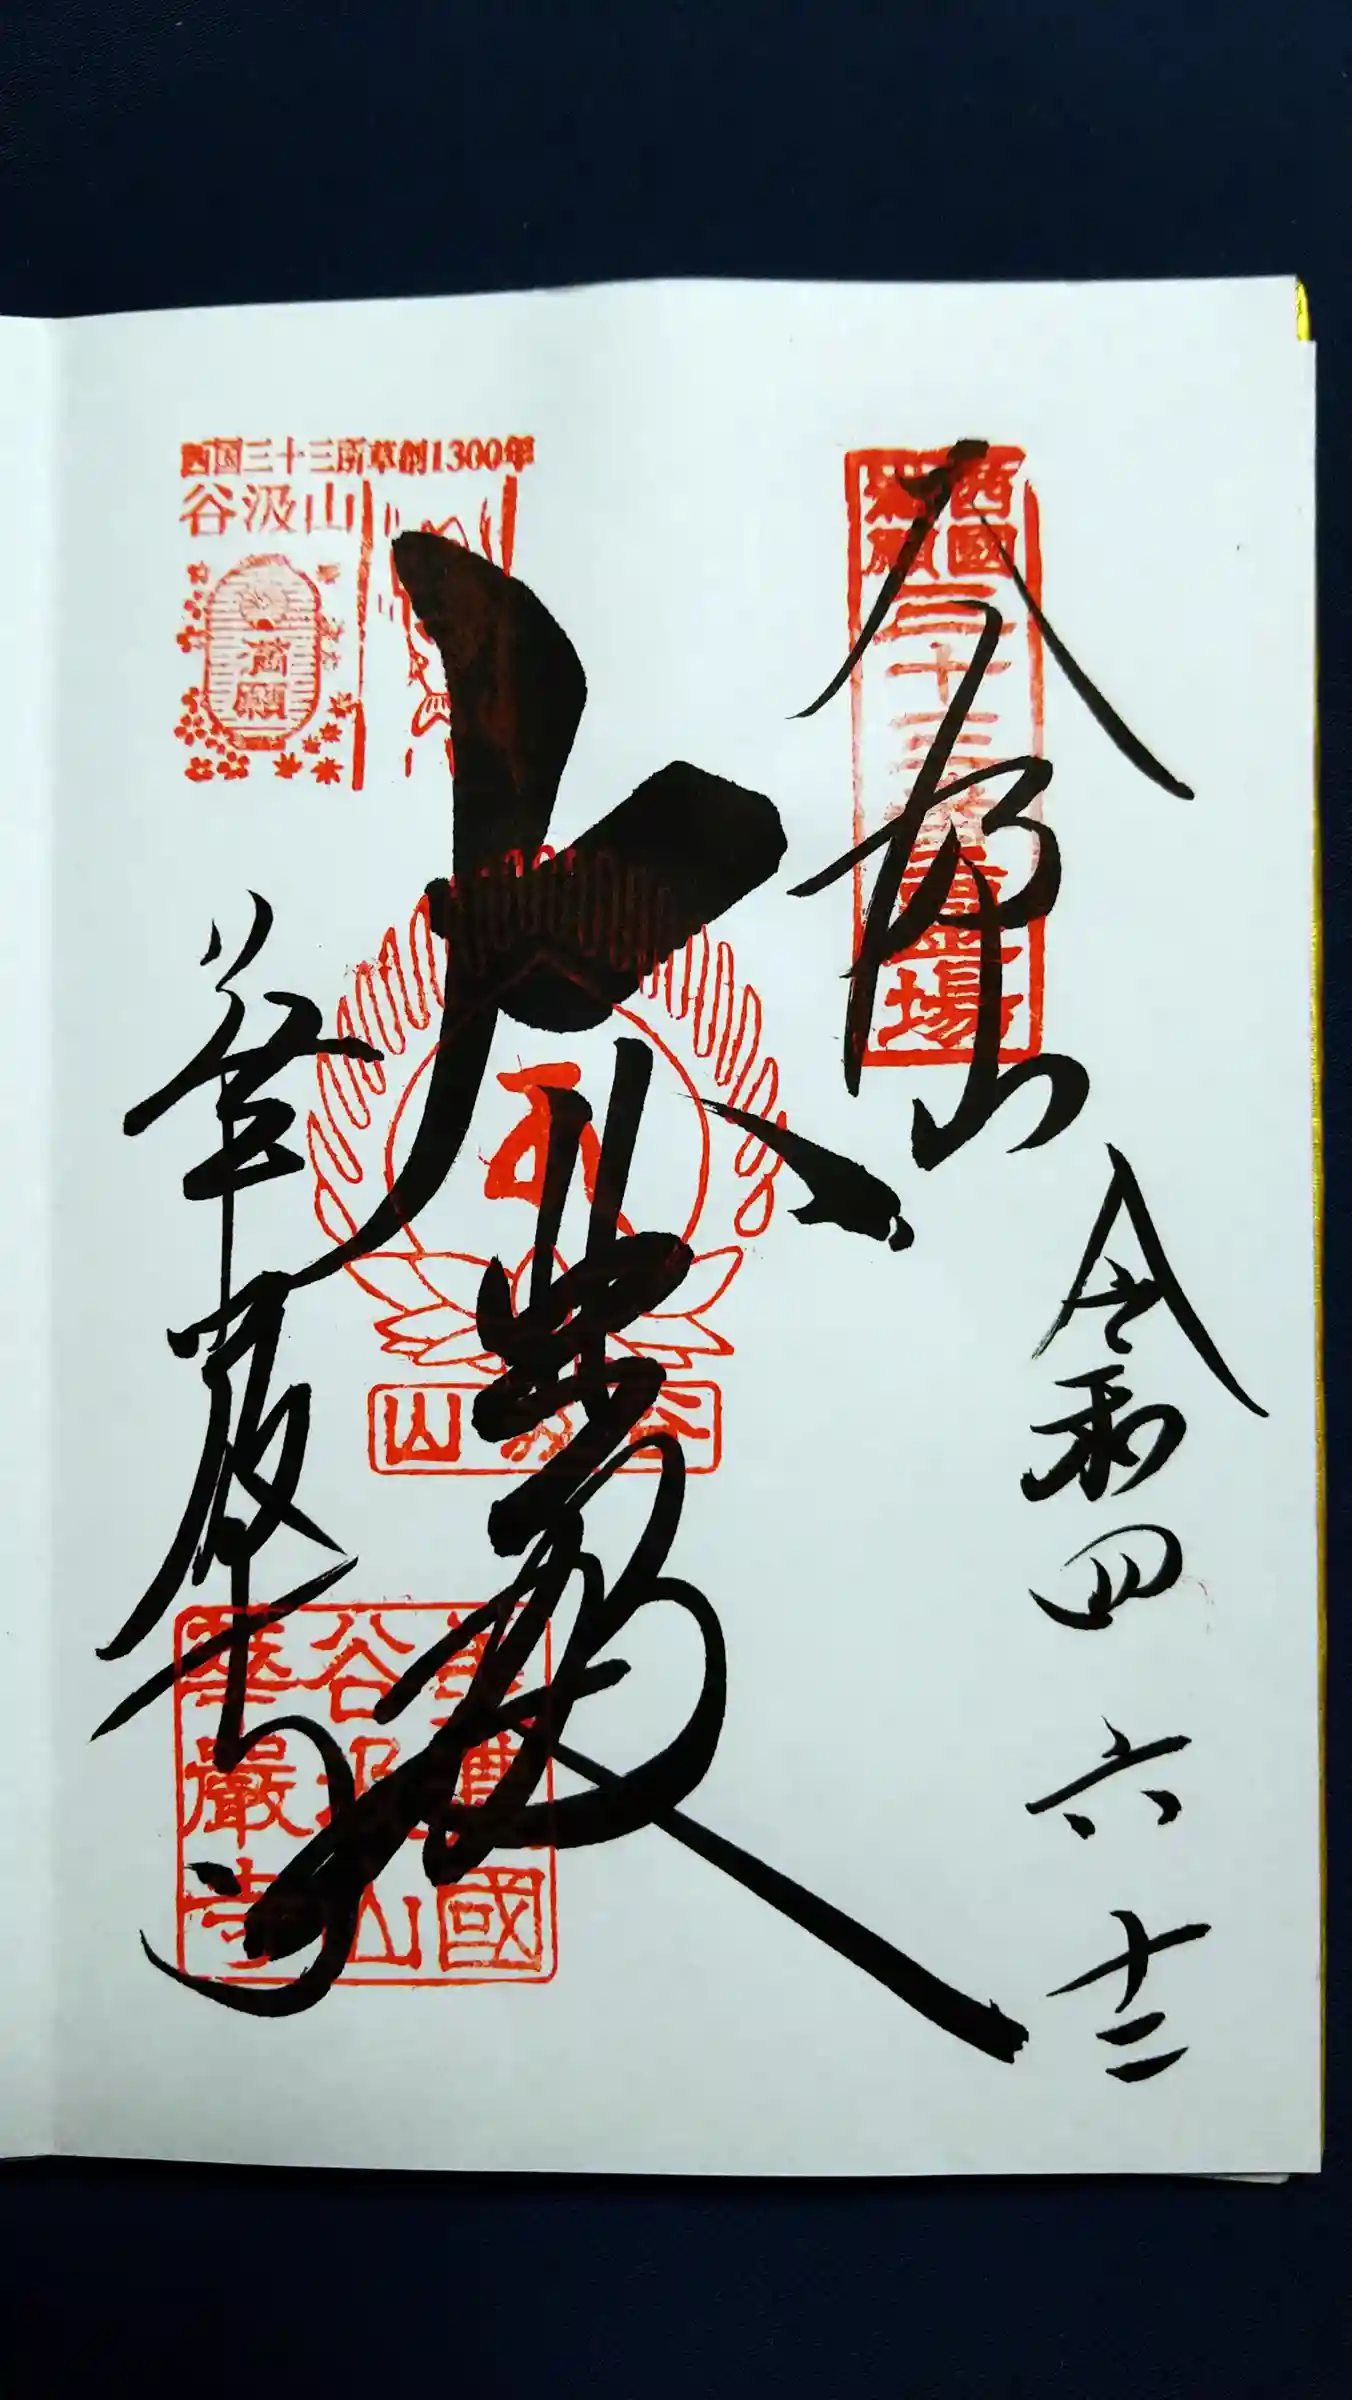 西國
満願
三十三番霊場
令和四 六 十二
大悲殿
谷汲山
西国三十三所草創1300年
谷汲山
満願
華厳寺
美濃國
谷汲山
華嚴寺